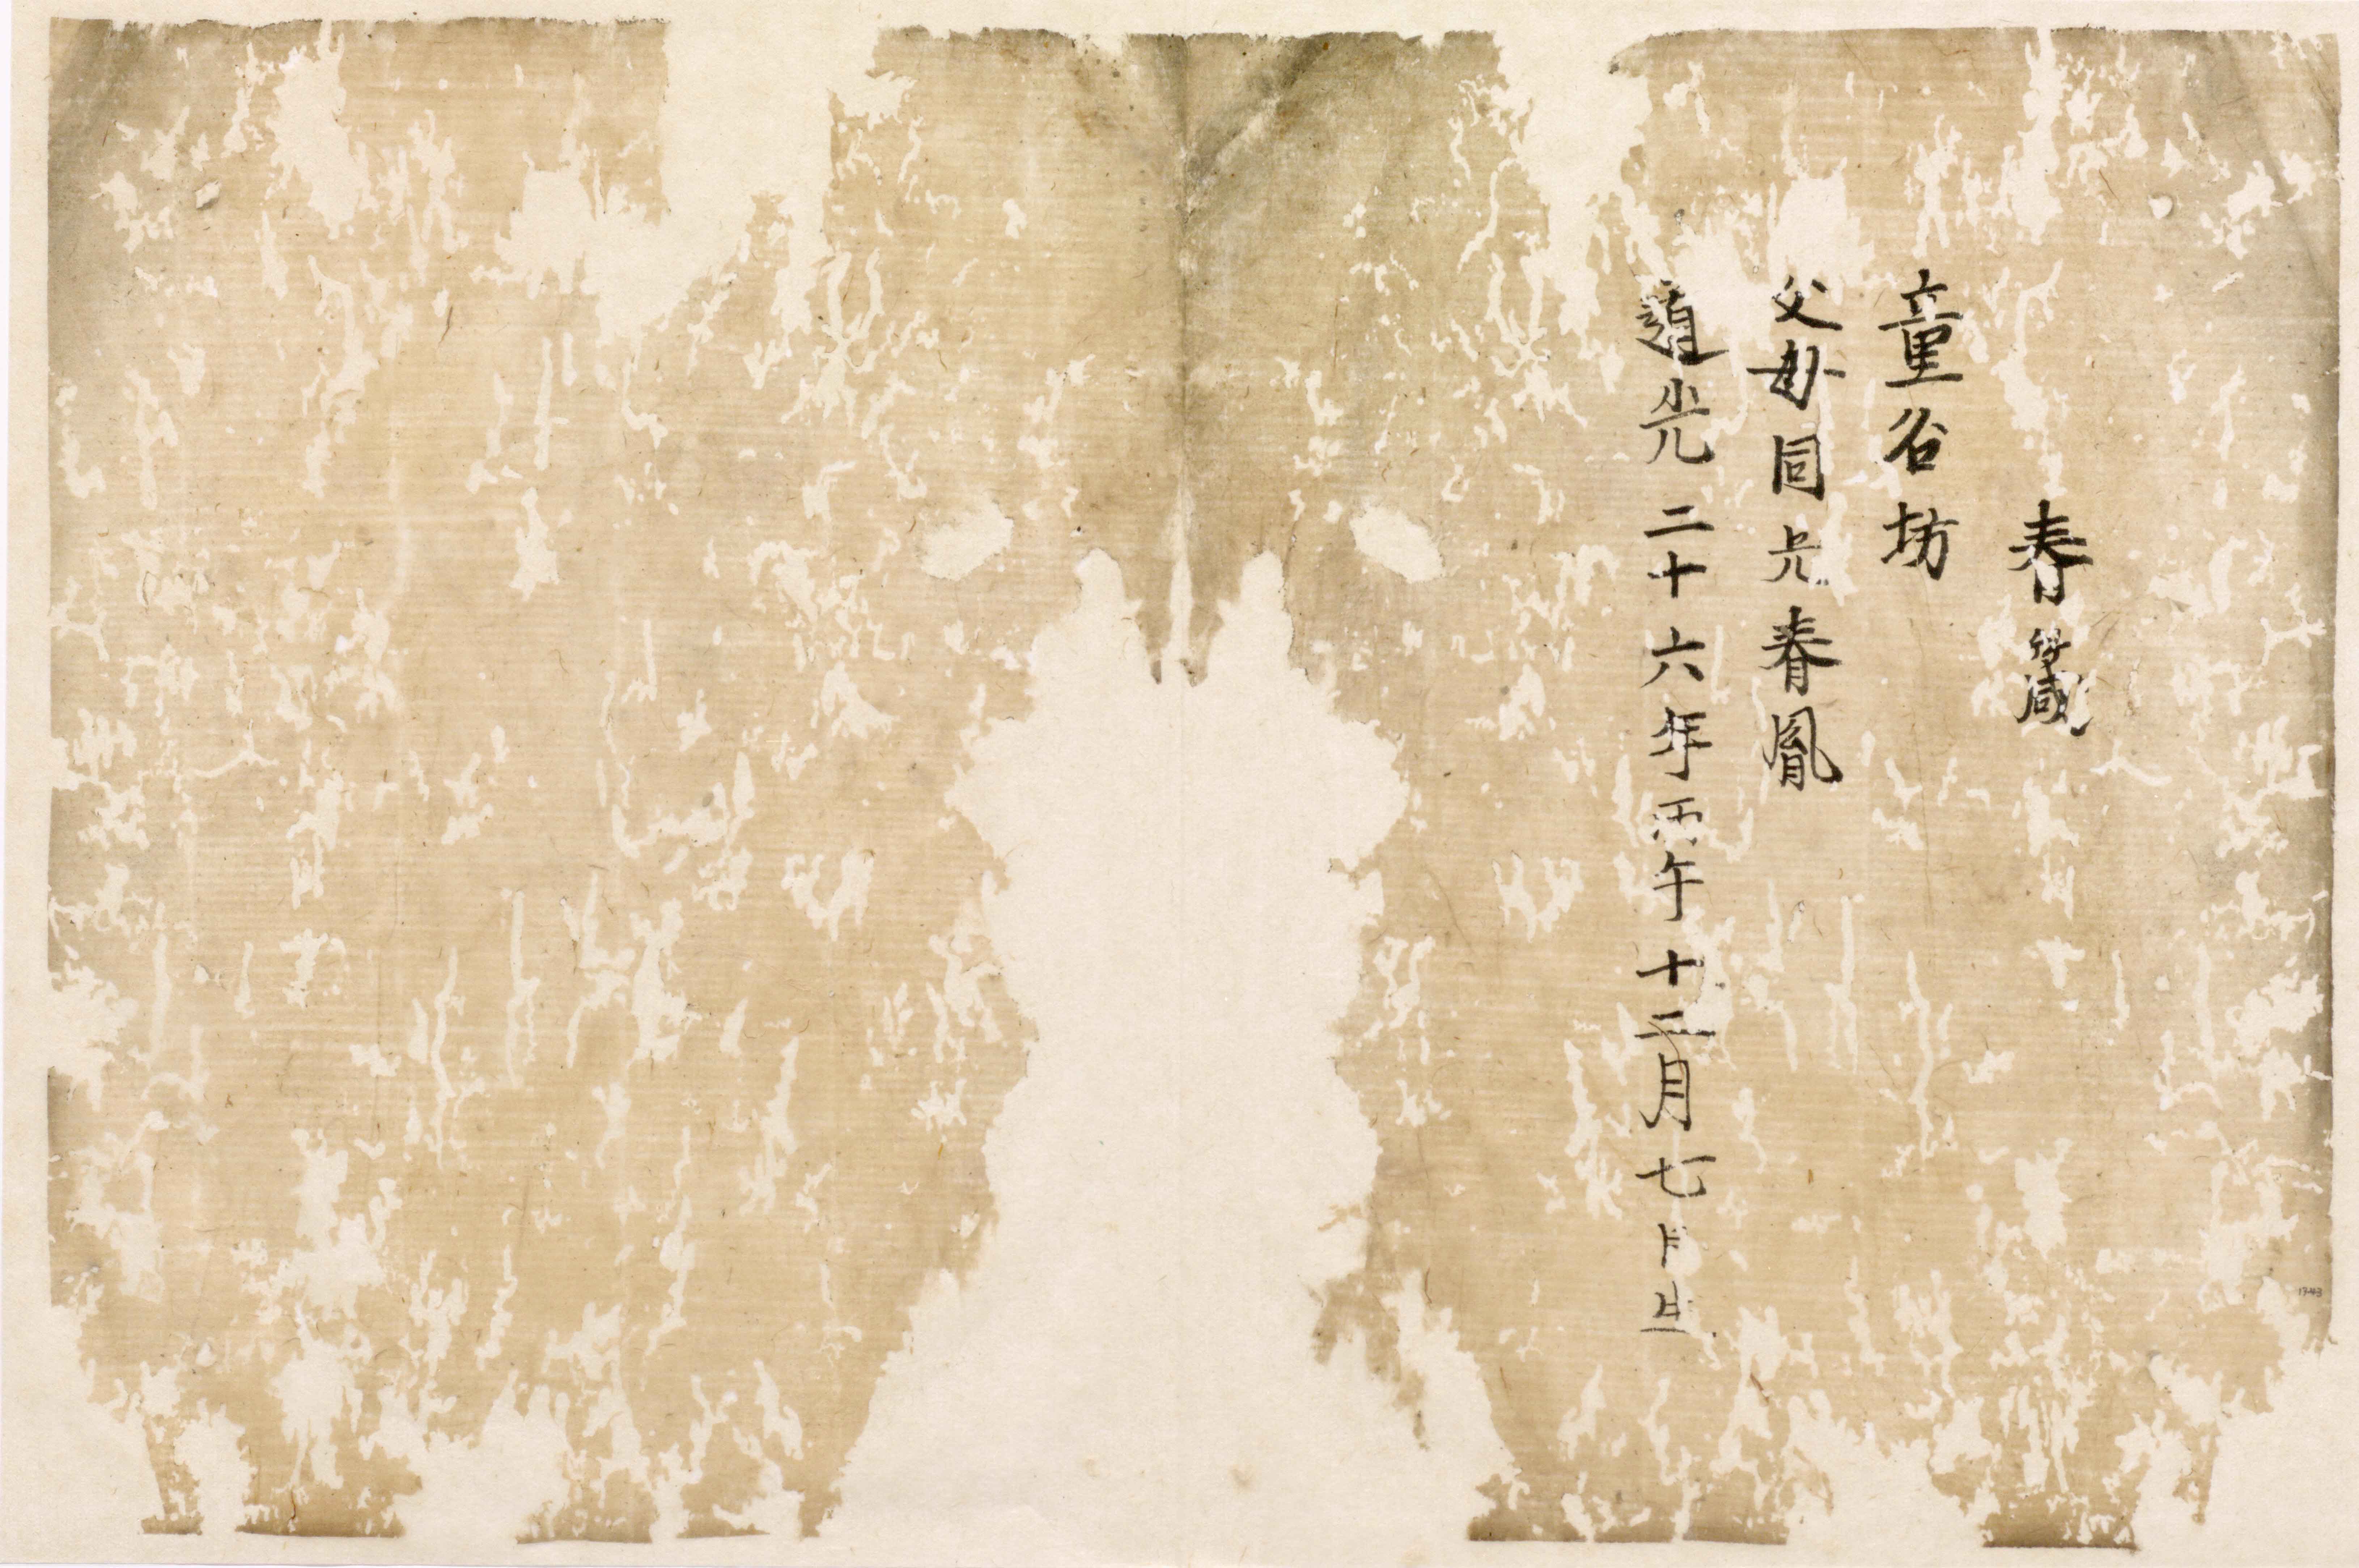 春箴
童谷坊
父母同光春鳳
道光二十六年丙午十二月七日生
1743